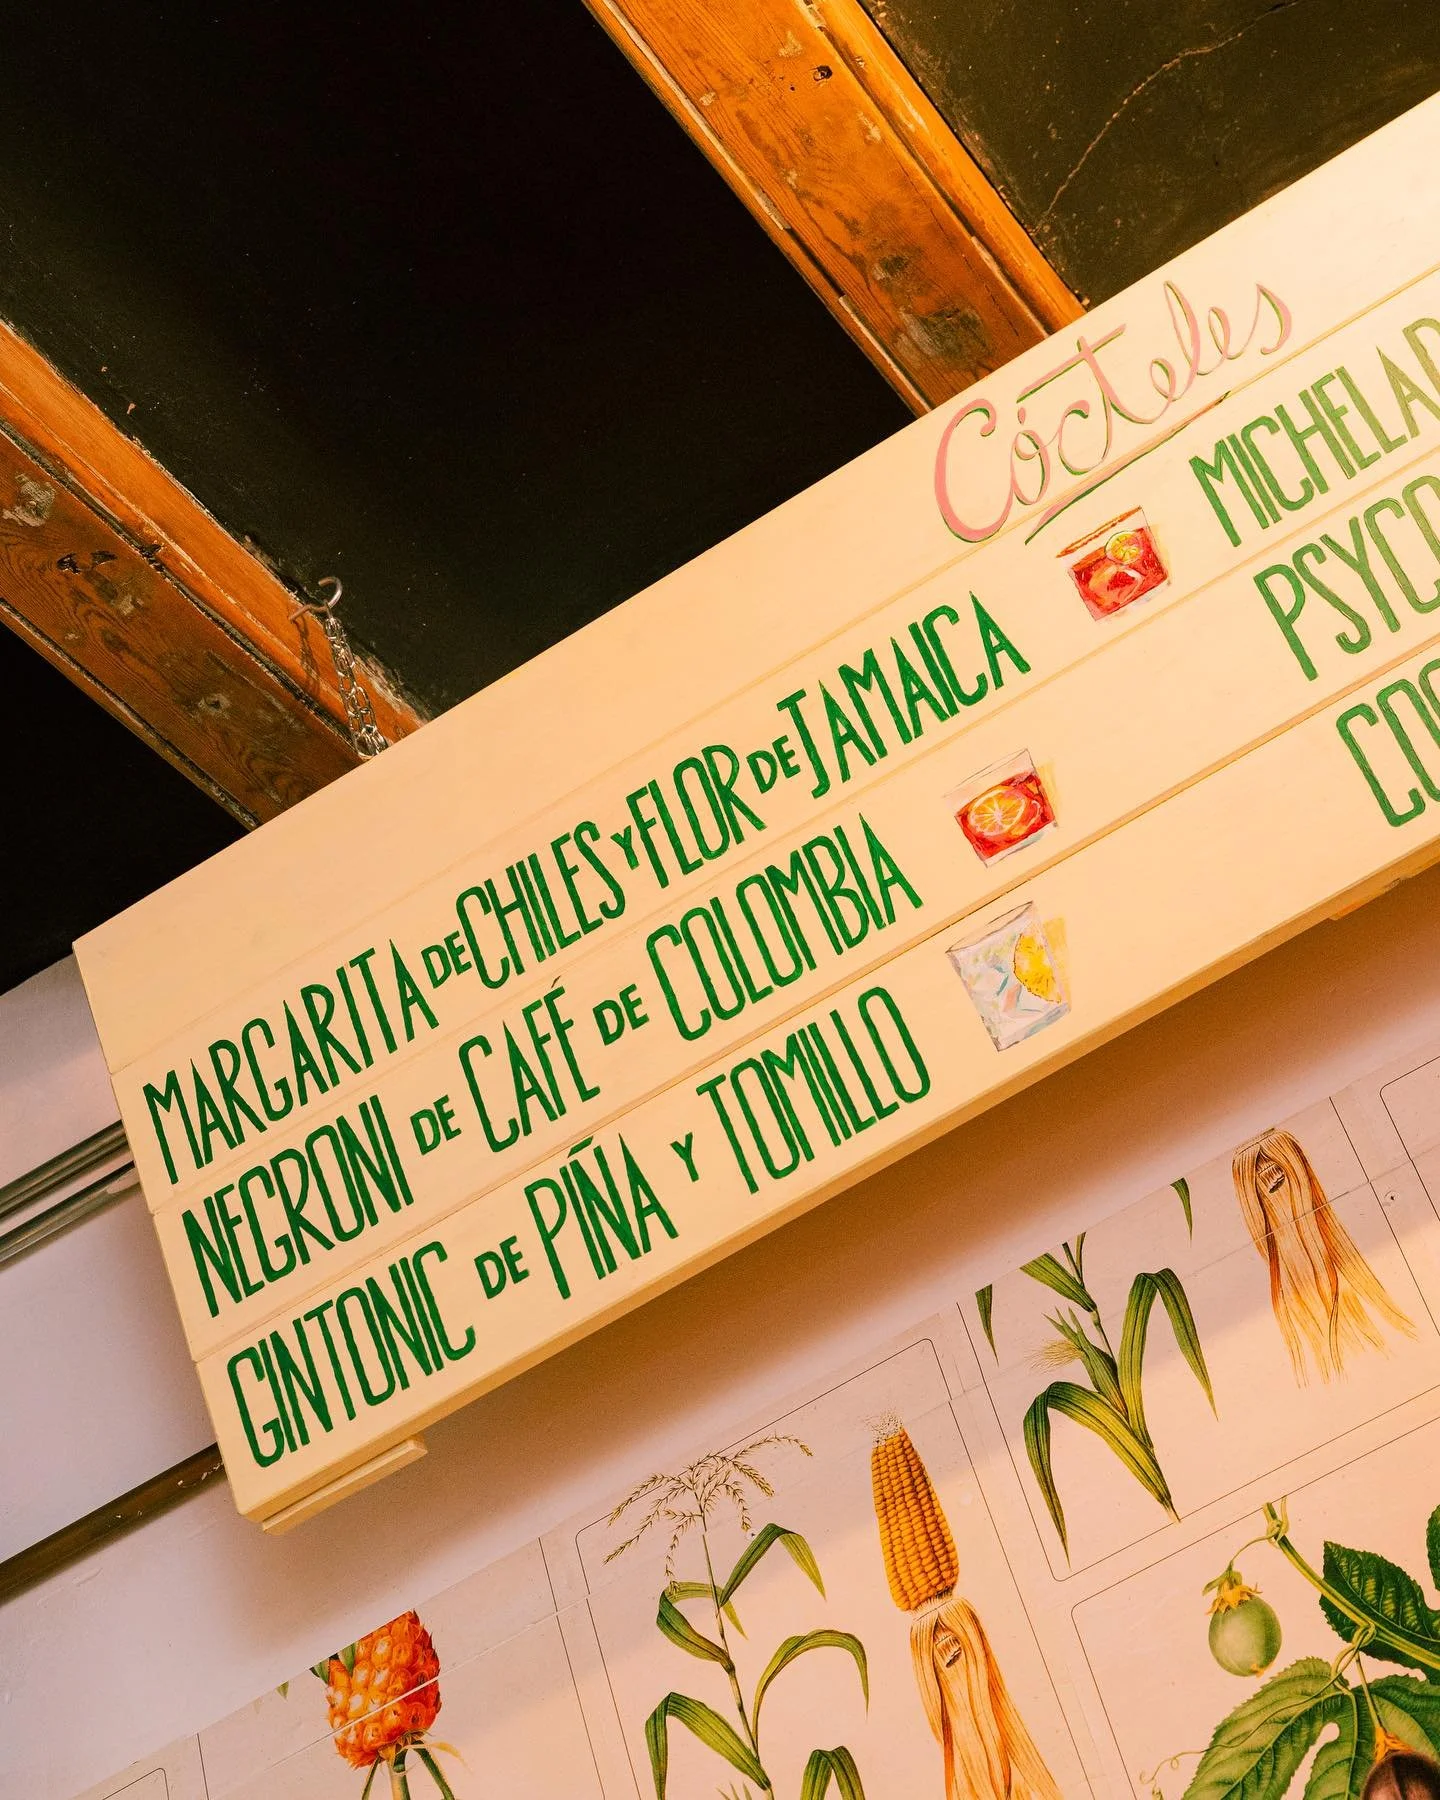 Cócteles
MARGARITA DE CHILES Y FLOR DE JAMAICA
NEGRONI DE CAFÉ DE COLOMBIA
GINTONIC DE PIÑA Y TOMILLO